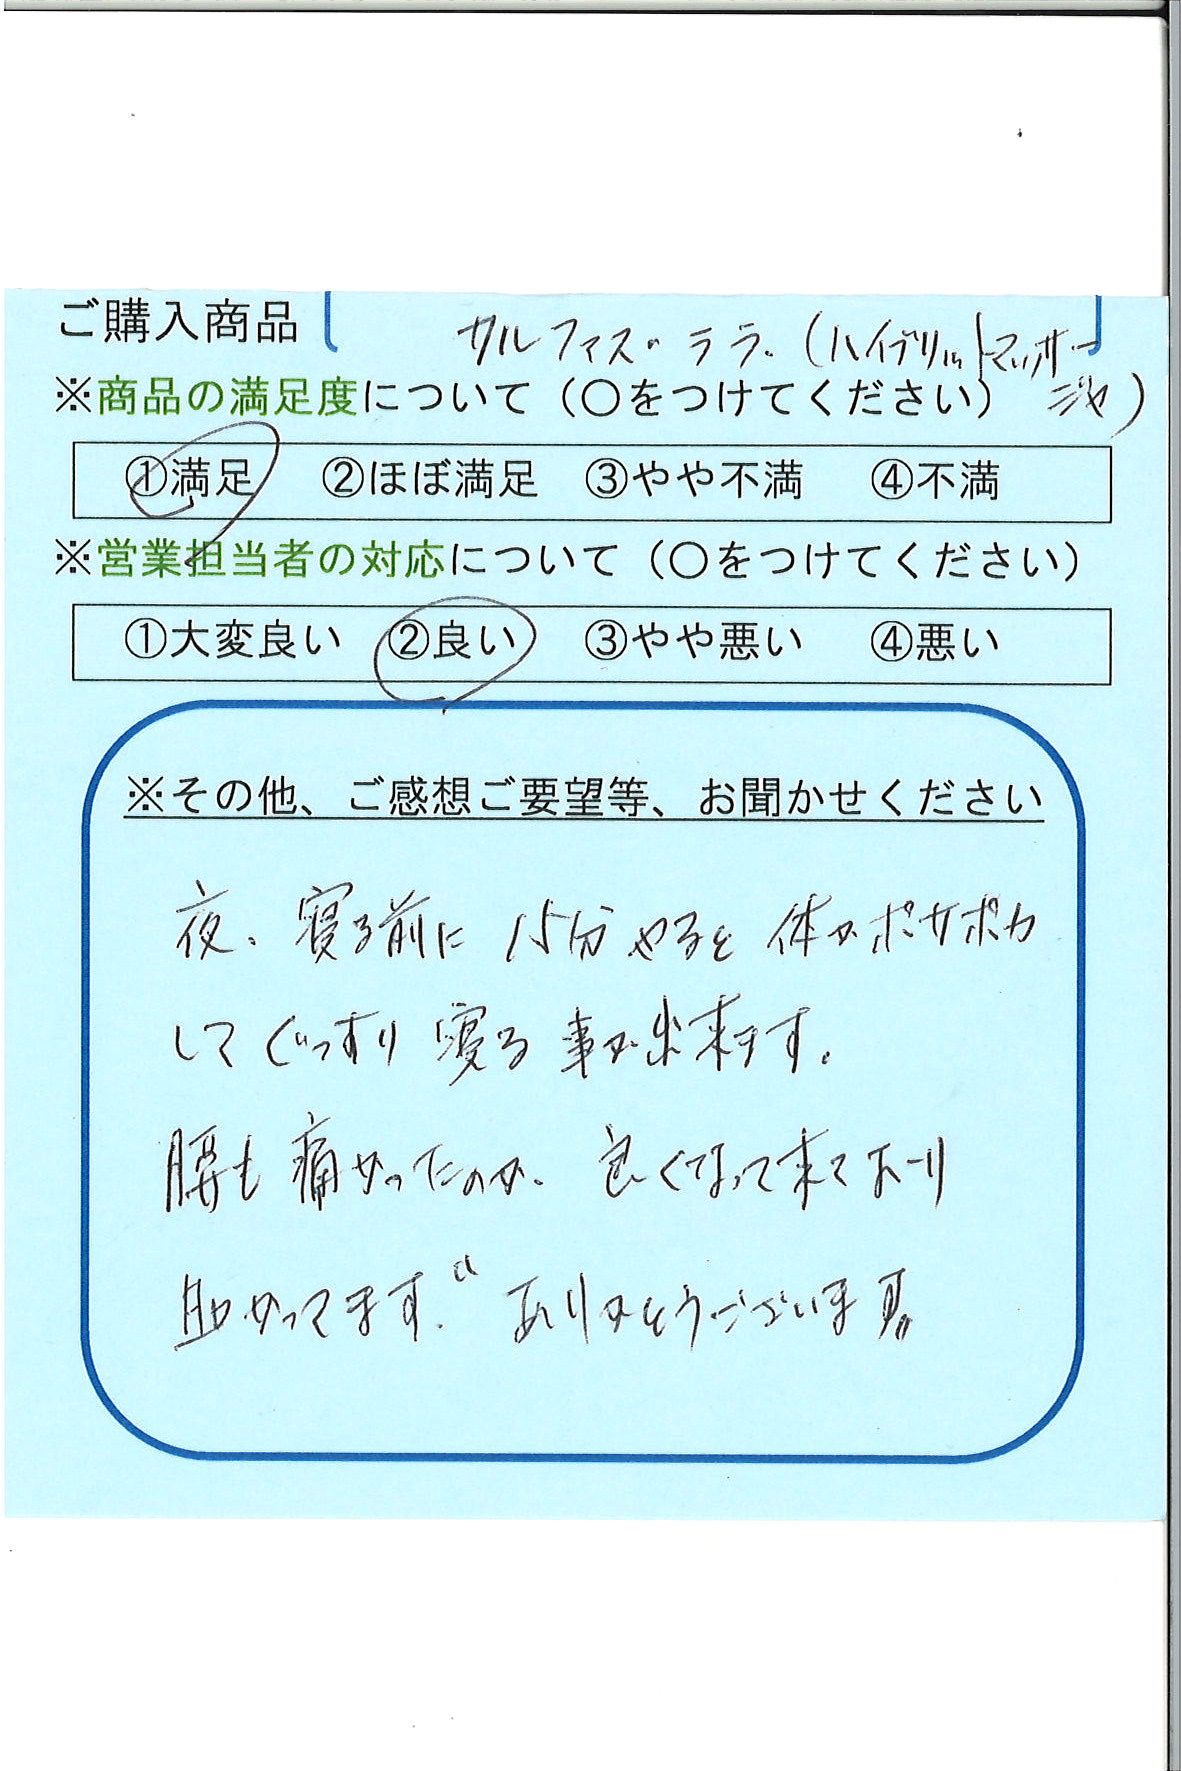 ご購入商品 サルファス・ララ.(ハイブリットマッサー
ジャ)
※商品の満足度について(○をつけてください)
①満足 ②ほぼ満足 ③やや不満 ④不満
※営業担当者の対応について(○をつけてください)
①大変良い ②良い ③やや悪い ④悪い
※その他、ご感想ご要望等、お聞かせください
夜、寝る前に 15分やると 体がポカポカ
してぐっすり 寝る 事が出来ます。
腰も 痛かったのが、良くなって来ており
助かってます。ありがとうございます。